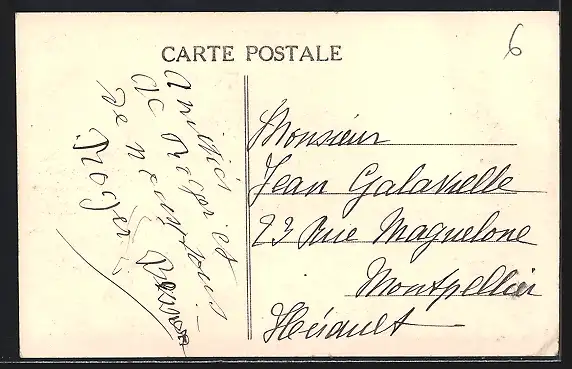 CARTE POSTALE
6
Amitiés
de Roger et
de
Roger
Monsieur
Jean Galavielle
23 Rue Maguelone
Montpellier
Hérault